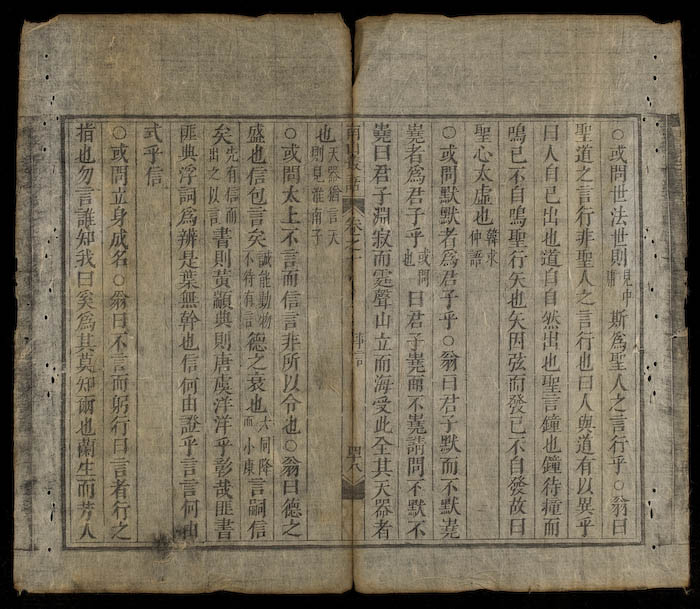 ○或問世法世則見中庸斯為聖人之言行乎○翁曰
聖道之言行非聖人之言行也曰人與道有以異乎
曰人自已出也道自自然出也聖言鐘也鐘待撞而
鳴已不自鳴聖行矢也矢因弦而發已不自發故曰
聖心太虛也韓求仲語
○或問默默者爲君子乎○翁曰君子默而不默嶤
嶤者爲君子乎或問也曰君子嶤而不嶤請問不默不
嶤曰君子淵寂而霆聲山立而海受此全其天器者
南山叢語 卷之十 四八
也天器猶言天則見淮南子
○或問太上不言而信言非所以令也○翁曰德之
盛也信包言矣誠能動物不待有言德之衰也大同降而小康言嗣信
矣先有信而出之以言書則黃顓典則唐虞洋洋乎彰哉匪書
匪典浮詞爲辨是葉無幹也信何由證乎言言何由
式乎信
○或問立身成名○翁曰不言而躬行曰言者行之
指也勿言誰知我曰奚爲其莫知爾也蘭生而芳人